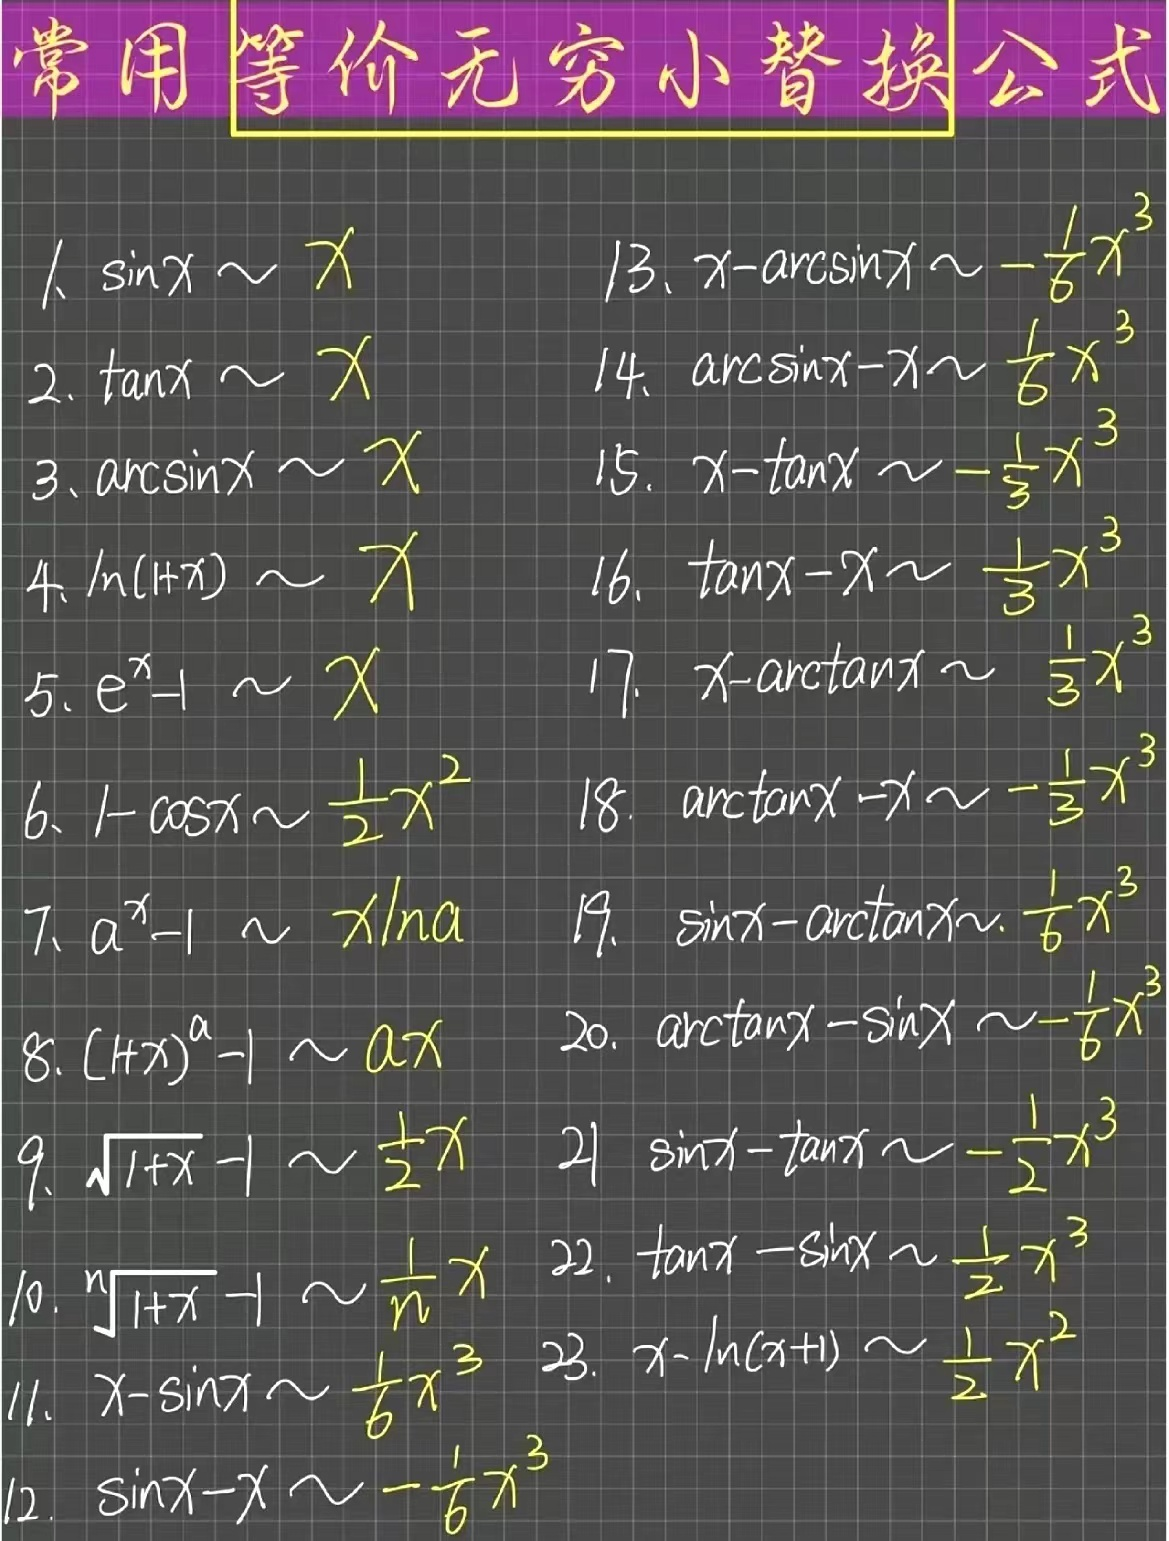 常用等价无穷小替换公式
1、sinx ~ x
2. tanx ~ x
3、arcsinx ~ x
4、ln(1+x) ~ x
5、eˣ-1 ~ x
6、1-cosx ~ 1/2 x²
7、aˣ-1 ~ xlna
8. (1+x)ᵃ-1 ~ ax
9、√(1+x) -1 ~ 1/2 x
10. ⁿ√(1+x) -1 ~ 1/n x
11. x-sinx ~ 1/6 x³
12. sinx-x ~ -1/6 x³
13、x-arcsinx ~ -1/6 x³
14. arcsinx-x ~ 1/6 x³
15. x-tanx ~ -1/3 x³
16. tanx-x ~ 1/3 x³
17. x-arctanx ~ 1/3 x³
18. arctanx-x ~ -1/3 x³
19. sinx-arctanx ~. 1/6 x³
20. arctanx-sinx ~ -1/6 x³
21 sinx-tanx ~ -1/2 x³
22. tanx-sinx ~ 1/2 x³
23. x-ln(x+1) ~ 1/2 x²